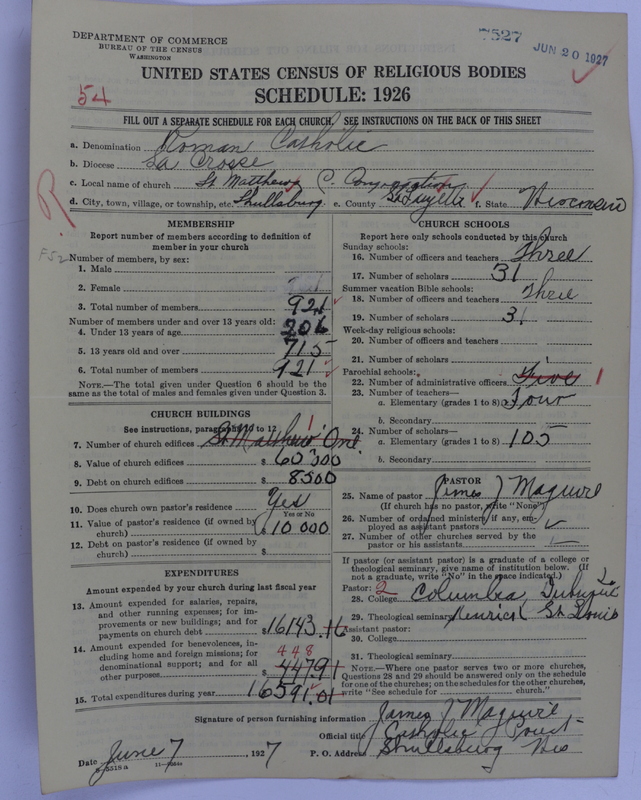 DEPARTMENT OF COMMERCE
BUREAU OF THE CENSUS
WASHINGTON
7527
JUN 20 1927
UNITED STATES CENSUS OF RELIGIOUS BODIES
SCHEDULE: 1926
54
FILL OUT A SEPARATE SCHEDULE FOR EACH CHURCH. SEE INSTRUCTIONS ON THE BACK OF THIS SHEET
a. Denomination Roman Catholic
b. Diocese La Crosse
c. Local name of church St Matthews C. Congregation
d. City, town, village, or township, etc. Shullsburg e. County LaFayette f. State Wisconsin
R.
MEMBERSHIP
Report number of members according to definition of
member in your church
Number of members, by sex:
1. Male
2. Female
3. Total number of members 921
Number of members under and over 13 years old:
4. Under 13 years of age 206
5. 13 years old and over 715
6. Total number of members 921
NOTE.—The total given under Question 6 should be the
same as the total of males and females given under Question 3.
CHURCH BUILDINGS
See instructions, paragraphs 10 to 12 1
7. Number of church edifices St Matthews One
8. Value of church edifices $ 60 000
9. Debt on church edifices $ 8500
10. Does church own pastor's residence? Yes
Yes or No
11. Value of pastor's residence (if owned by
church) $ 10 000
12. Debt on pastor's residence (if owned by
church) $
EXPENDITURES
Amount expended by your church during last fiscal year
13. Amount expended for salaries, repairs,
and other running expenses; for im-
provements or new buildings; and for
payments on church debt $ 16143.16
14. Amount expended for benevolences, in-
cluding home and foreign missions; for
denominational support; and for all
other purposes $ 447.91
448
15. Total expenditures during year $ 16591.01
CHURCH SCHOOLS
Report here only schools conducted by this church
Sunday schools:
16. Number of officers and teachers Three
17. Number of scholars 31
Summer vacation Bible schools:
18. Number of officers and teachers Three
19. Number of scholars 31
Week-day religious schools:
20. Number of officers and teachers
21. Number of scholars
Parochial schools:
22. Number of administrative officers Five 1
23. Number of teachers—
a. Elementary (grades 1 to 8) Four
b. Secondary
24. Number of scholars—
a. Elementary (grades 1 to 8) 105
b. Secondary
PASTOR
25. Name of pastor James J Maguire
(If church has no pastor, write "None")
26. Number of ordained ministers, if any, em-
ployed as assistant pastors
27. Number of other churches served by the
pastor or his assistants
If pastor (or assistant pastor) is a graduate of a college or
theological seminary, give name of institution below. (If
not a graduate, write "No" in the space indicated.)
Pastor: 2
28. College Columbia Dubuque
29. Theological seminary Kenrick St Louis
Assistant pastor:
30. College
31. Theological seminary
NOTE.—Where one pastor serves two or more churches,
Questions 28 and 29 should be answered only on the schedule
for one of the churches; on the schedules for the other churches,
write "See schedule for church."
Signature of person furnishing information James J Maguire
Official title Catholic Priest
Date June 7, 1927 P. O. Address Shullsburg Wis